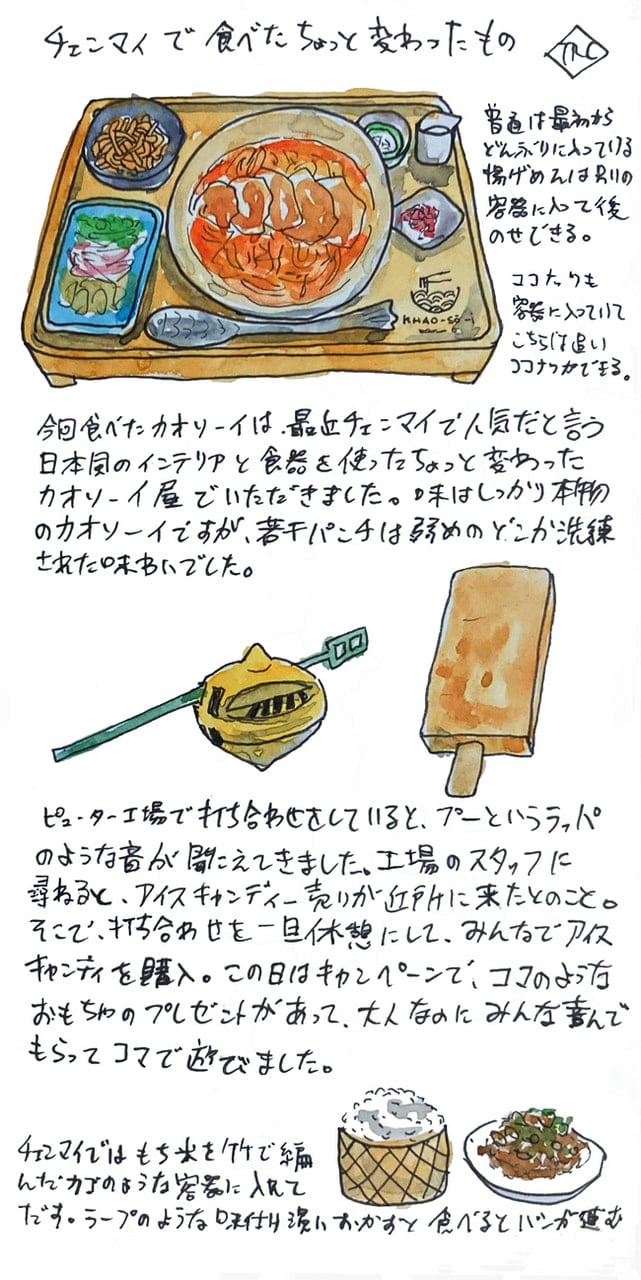 チェンマイで食べたちょっと変わったもの
TRC
普通は最初から
どんぶりに入っている
揚げめんは別の
容器に入って後
のせできる。
ココナツも
容器に入っていて
こちらは追い
ココナッツができる。
KHAO-SO-i
今回食べたカオソーイは、最近チェンマイで人気だと言う
日本風のインテリアと食器を使ったちょっと変わった
カオソーイ屋でいただきました。味はしっかり本物
のカオソーイですが、若干パンチは弱めのどこか洗練
された味わいでした。
ピューター工場で打ち合わせをしていると、プーというラッパ
のような音が聞こえてきました。工場のスタッフに
尋ねると、アイスキャンディー売りが近所に来たとのこと。
そこで、打ち合わせを一旦休憩にして、みんなでアイス
キャンディを購入。この日はキャンペーンで、コマのような
おもちゃのプレゼントがあって、大人なのにみんな喜んで
もらってコマで遊びました。
チェンマイではもち米を竹で編
んだカゴのような容器に入れて
だす。ラープのような味付け濃いおかずと食べるとハンが進む